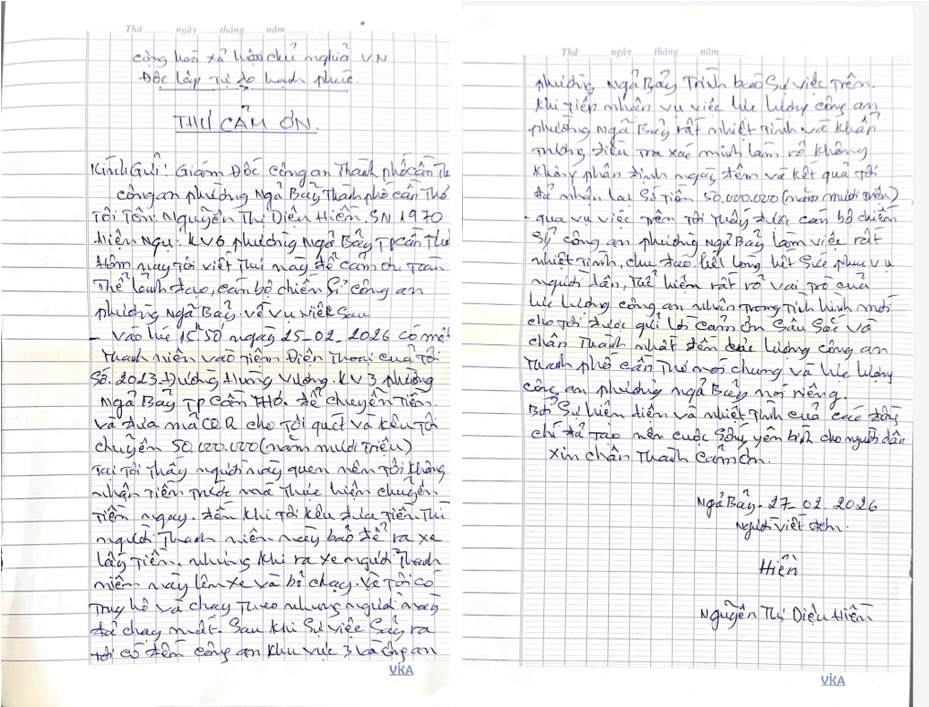 Thứ ngày tháng năm
cộng hoà xã hội chủ nghĩa VN
Độc lập Tự do hạnh phúc
THƯ CẢM ƠN.
Kính Gửi: Giám Đốc công an Thành phố cần Th
công an phường Ngã Bảy Thành phố cần Thơ
Tôi Tên: Nguyễn Thị Diệu Hiền. SN 1970
Hiện Ngụ: KV6 phường Ngã Bảy TP cần Thơ
Hôm nay Tôi viết Thư này để cảm ơn Toàn
Thể lãnh đạo, cán bộ chiến Sĩ công an
phường Ngã Bảy. về vụ việc Sau
- vào lúc 15h50 ngày 25-02-2026 có một
Thanh niên vào Tiệm Điện Thoại của Tôi
Số. 2023. Đường Hùng Vương. KV3 phường
Ngã Bảy TP Cần THơ. để chuyển Tiền
và đưa mã QR cho Tôi quét và kêu Tôi
chuyển 50.000.000 (năm mươi Triệu)
Tại Tôi Thấy người này quen nên Tôi không
nhận Tiền Trước mà Thực hiện chuyển
Tiền ngay. đến khi Tôi kêu đưa Tiền Thì
người Thanh niên này bảo để ra xe
lấy Tiền. nhưng khi ra xe người Thanh
niên này lên xe và bỏ chạy. và Tôi có
Truy hô và chạy Theo nhưng người này
đã chạy mất. Sau khi Sự việc Sảy ra
tôi có đến công an khu vực 3 và công an
VKA
Thứ ngày tháng năm
phường Ngã Bảy Trình báo Sự việc Trên.
khi Tiếp nhận vụ việc lực lượng công an
phường Ngã Bảy rất nhiệt Tình và khẩn
Trương điều Tra xác minh làm rõ không
không phân định ngày đêm và kết quả Tôi
đã nhận lại Số Tiền 50.000.000 (năm mươi Triệu)
- qua vụ việc Trên Tôi Thấy được cán bộ chiến
Sỹ công an phường Ngã Bảy làm việc rất
nhiệt Tình, chu đáo hết lòng hết Sức phục vụ
người dân, Thể hiện rất rõ vai trò của
lực lượng công an nhân Trong Tình hình mới
cho Tôi được gửi lời cảm ơn Sâu Sắc và
chân Thành nhất đến lực lượng công an
Thành phố cần Thơ nói chung và lực lượng
công an phường ngã Bảy nói riêng.
Bởi Sự hiện diện và nhiệt Tình của các đồng
chí đã Tạo nên cuộc Sống yên bình cho người dân
Xin chân Thành cảm ơn.
Ngã Bảy - 27-02-2026
Người viết đơn.
Hiền
Nguyễn Thị Diệu Hiền
VKA